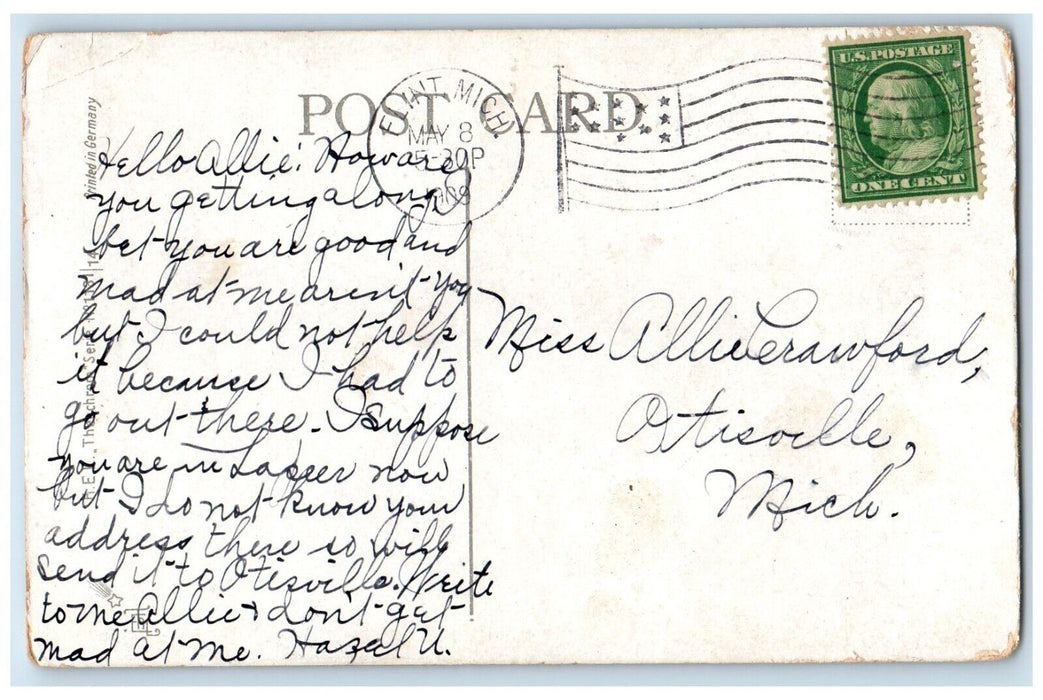 POST CARD
FLINT, MICH.
MAY 8
5-30P
U.S. POSTAGE
ONE CENT
Printed in Germany
Hello Allie: How are
you getting along I
bet you are good and
mad at me aren't you
but I could not help
it because I had to
go out there. I suppose
you are in Lapeer now
but I do not know your
address there so will
send it to Otisville. Write
to me Allie & don't get
mad at me. Hazel U.
Miss Allie Crawford,
Otisville,
Mich.